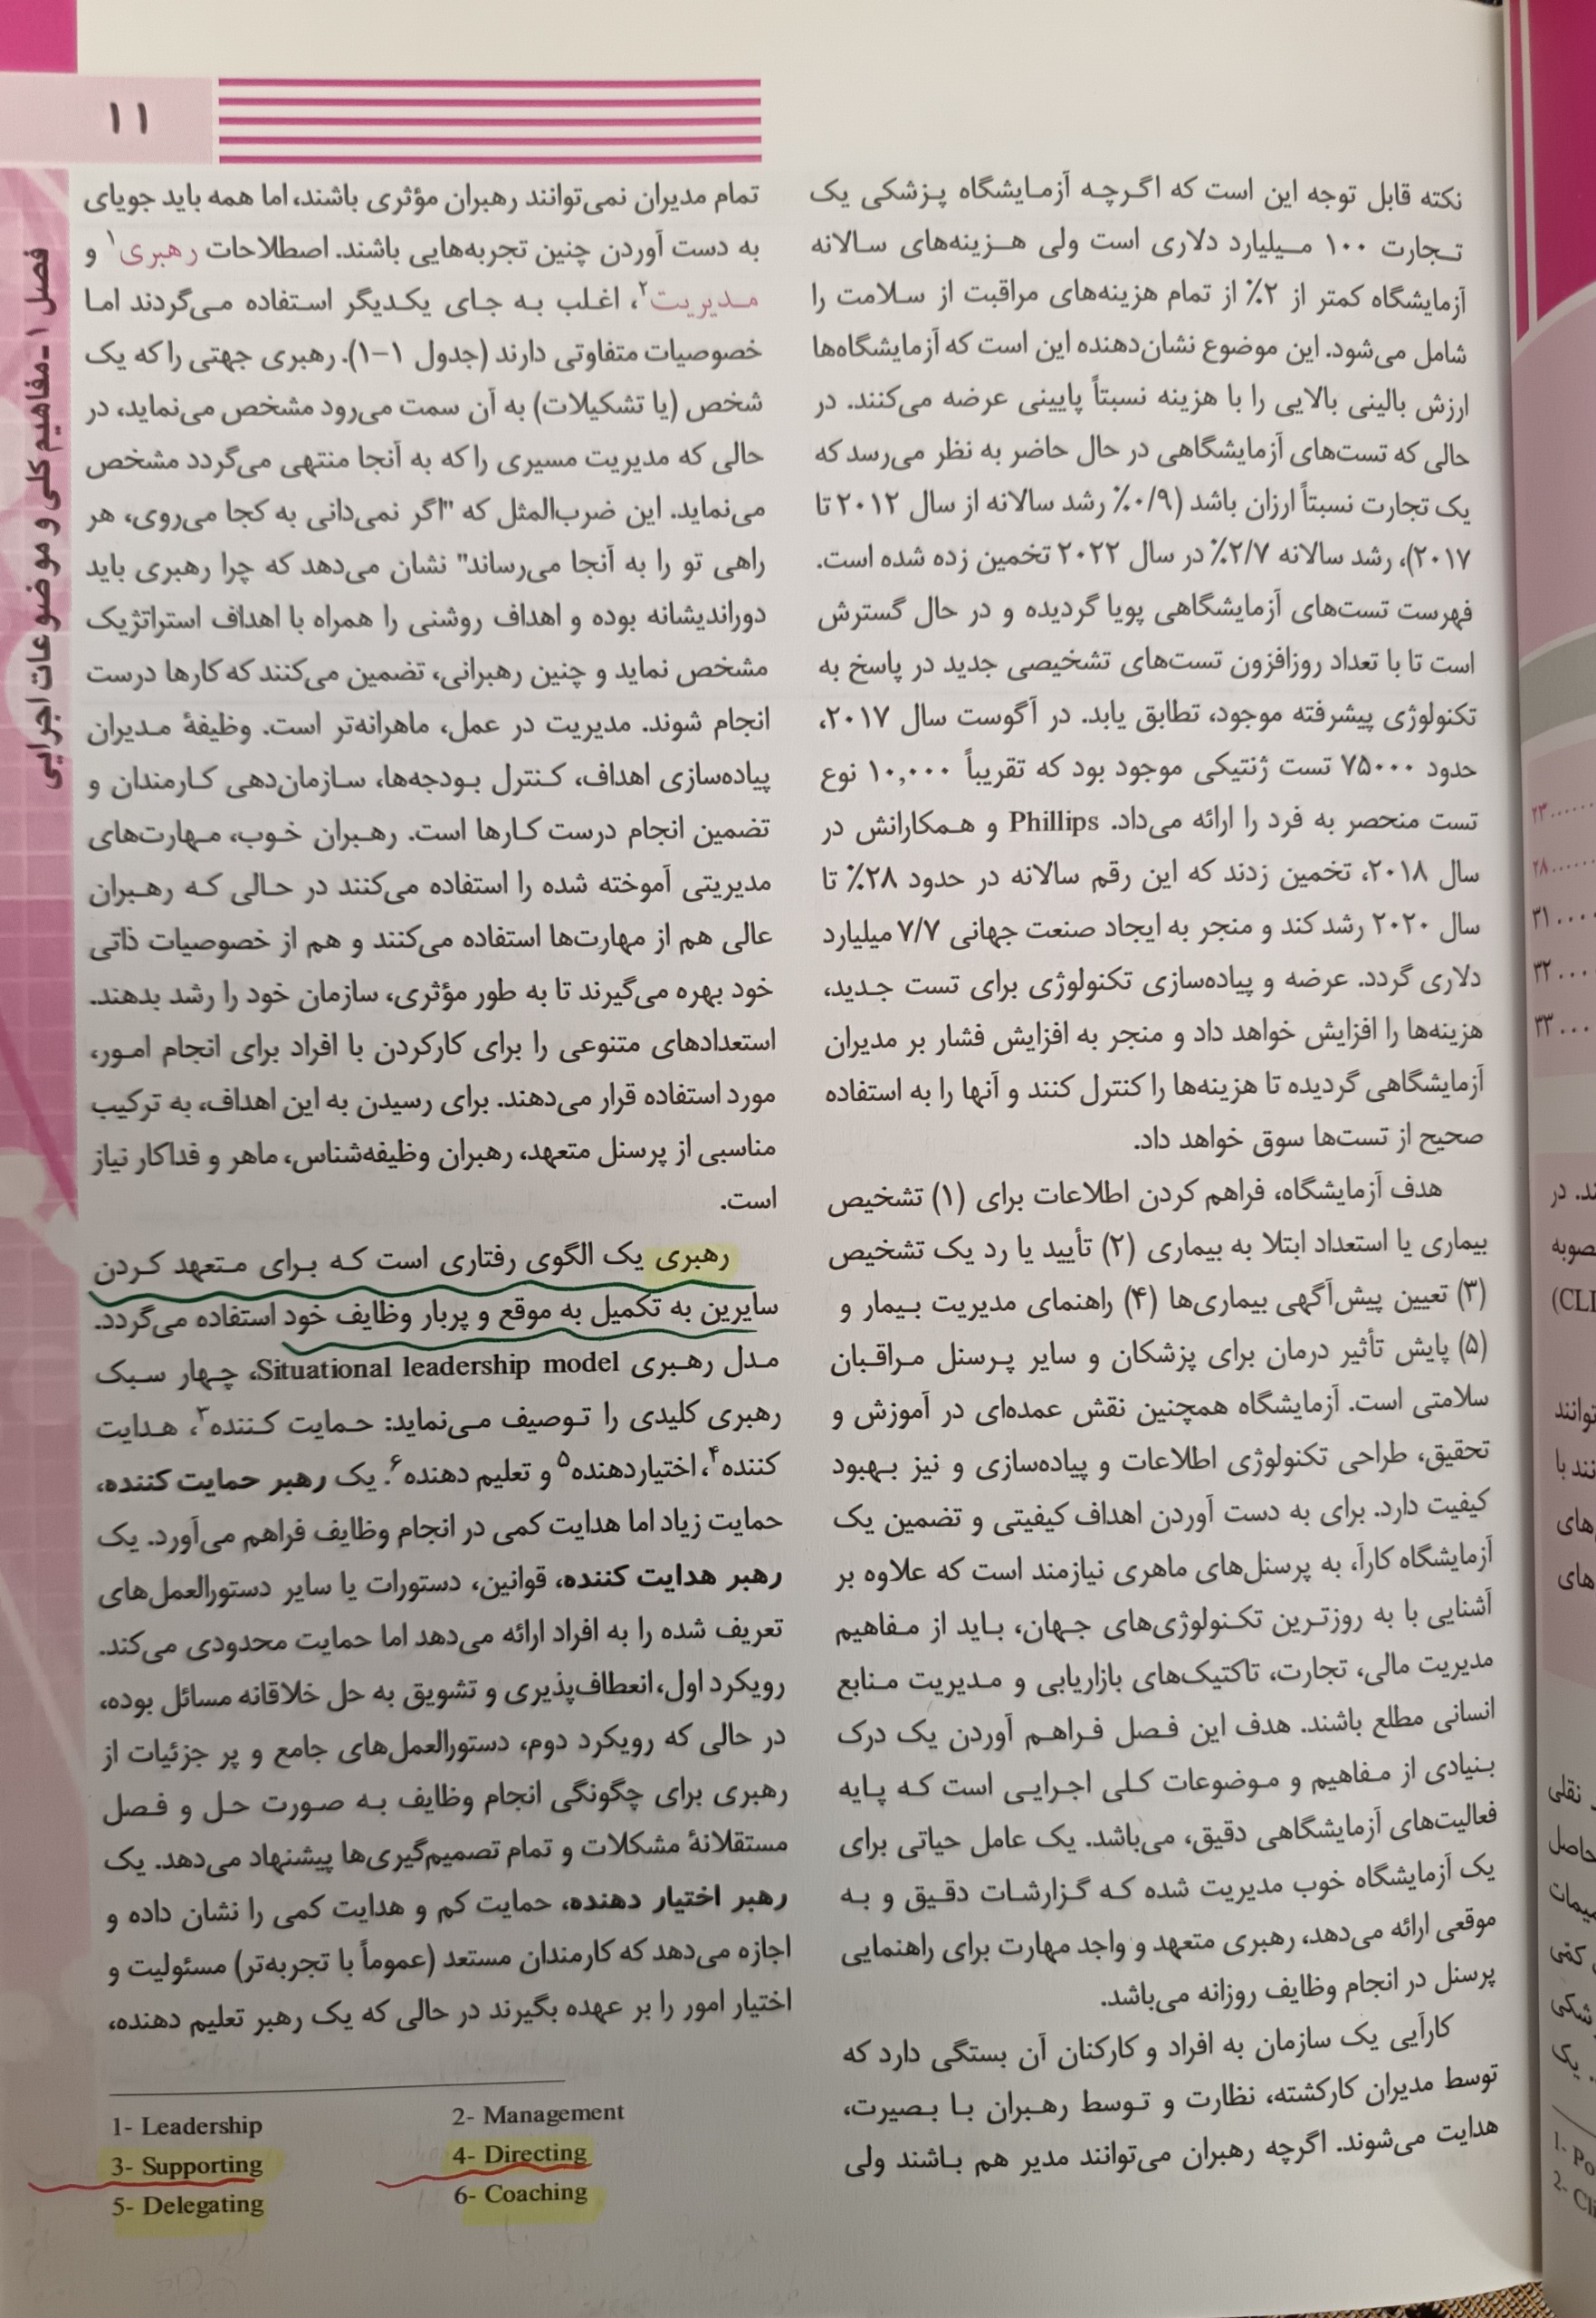 ۱۱
فصل ۱ ـ مفاهیم کلی و موضوعات اجرایی
نکته قابل توجه این است که اگرچه آزمایشگاه پزشکی یک
تجارت ۱۰۰ میلیارد دلاری است ولی هزینه‌های سالانه
آزمایشگاه کمتر از ۲٪ از تمام هزینه‌های مراقبت از سلامت را
شامل می‌شود. این موضوع نشان‌دهنده این است که آزمایشگاه‌ها
ارزش بالینی بالایی را با هزینه نسبتاً پایینی عرضه می‌کنند. در
حالی که تست‌های آزمایشگاهی در حال حاضر به نظر می‌رسد که
یک تجارت نسبتاً ارزان باشد (۰/۹٪ رشد سالانه از سال ۲۰۱۲ تا
۲۰۱۷)، رشد سالانه ۲/۷٪ در سال ۲۰۲۲ تخمین زده شده است.
فهرست تست‌های آزمایشگاهی پویا گردیده و در حال گسترش
است تا با تعداد روزافزون تست‌های تشخیصی جدید در پاسخ به
تکنولوژی پیشرفته موجود، تطابق یابد. در آگوست سال ۲۰۱۷،
حدود ۷۵۰۰۰ تست ژنتیکی موجود بود که تقریباً ۱۰,۰۰۰ نوع
تست منحصر به فرد را ارائه می‌داد. Phillips و همکارانش در
سال ۲۰۱۸، تخمین زدند که این رقم سالانه در حدود ۲۸٪ تا
سال ۲۰۲۰ رشد کند و منجر به ایجاد صنعت جهانی ۷/۷ میلیارد
دلاری گردد. عرضه و پیاده‌سازی تکنولوژی برای تست جدید،
هزینه‌ها را افزایش خواهد داد و منجر به افزایش فشار بر مدیران
آزمایشگاهی گردیده تا هزینه‌ها را کنترل کنند و آنها را به استفاده
صحیح از تست‌ها سوق خواهد داد.
هدف آزمایشگاه، فراهم کردن اطلاعات برای (۱) تشخیص
بیماری یا استعداد ابتلا به بیماری (۲) تأیید یا رد یک تشخیص
(۳) تعیین پیش‌آگهی بیماری‌ها (۴) راهنمای مدیریت بیمار و
(۵) پایش تأثیر درمان برای پزشکان و سایر پرسنل مراقبان
سلامتی است. آزمایشگاه همچنین نقش عمده‌ای در آموزش و
تحقیق، طراحی تکنولوژی اطلاعات و پیاده‌سازی و نیز بهبود
کیفیت دارد. برای به دست آوردن اهداف کیفیتی و تضمین یک
آزمایشگاه کارآ، به پرسنل‌های ماهری نیازمند است که علاوه بر
آشنایی با به روزترین تکنولوژی‌های جهان، باید از مفاهیم
مدیریت مالی، تجارت، تاکتیک‌های بازاریابی و مدیریت منابع
انسانی مطلع باشند. هدف این فصل فراهم آوردن یک درک
بنیادی از مفاهیم و موضوعات کلی اجرایی است که پایه
فعالیت‌های آزمایشگاهی دقیق، می‌باشد. یک عامل حیاتی برای
یک آزمایشگاه خوب مدیریت شده که گزارشات دقیق و به
موقعی ارائه می‌دهد، رهبری متعهد و واجد مهارت برای راهنمایی
پرسنل در انجام وظایف روزانه می‌باشد.
کارآیی یک سازمان به افراد و کارکنان آن بستگی دارد که
توسط مدیران کارکشته، نظارت و توسط رهبران با بصیرت،
هدایت می‌شوند. اگرچه رهبران می‌توانند مدیر هم باشند ولی
تمام مدیران نمی‌توانند رهبران مؤثری باشند، اما همه باید جویای
به دست آوردن چنین تجربه‌هایی باشند. اصطلاحات رهبری۱ و
مدیریت۲، اغلب به جای یکدیگر استفاده می‌گردند اما
خصوصیات متفاوتی دارند (جدول ۱-۱). رهبری جهتی را که یک
شخص (یا تشکیلات) به آن سمت می‌رود مشخص می‌نماید، در
حالی که مدیریت مسیری را که به آنجا منتهی می‌گردد مشخص
می‌نماید. این ضرب‌المثل که "اگر نمی‌دانی به کجا می‌روی، هر
راهی تو را به آنجا می‌رساند" نشان می‌دهد که چرا رهبری باید
دوراندیشانه بوده و اهداف روشنی را همراه با اهداف استراتژیک
مشخص نماید و چنین رهبرانی، تضمین می‌کنند که کارها درست
انجام شوند. مدیریت در عمل، ماهرانه‌تر است. وظیفهٔ مدیران
پیاده‌سازی اهداف، کنترل بودجه‌ها، سازمان‌دهی کارمندان و
تضمین انجام درست کارها است. رهبران خوب، مهارت‌های
مدیریتی آموخته شده را استفاده می‌کنند در حالی که رهبران
عالی هم از مهارت‌ها استفاده می‌کنند و هم از خصوصیات ذاتی
خود بهره می‌گیرند تا به طور مؤثری، سازمان خود را رشد بدهند.
استعدادهای متنوعی را برای کارکردن با افراد برای انجام امور،
مورد استفاده قرار می‌دهند. برای رسیدن به این اهداف، به ترکیب
مناسبی از پرسنل متعهد، رهبران وظیفه‌شناس، ماهر و فداکار نیاز
است.
رهبری یک الگوی رفتاری است که برای متعهد کردن
سایرین به تکمیل به موقع و پربار وظایف خود استفاده می‌گردد.
مدل رهبری Situational leadership model، چهار سبک
رهبری کلیدی را توصیف می‌نماید: حمایت کننده۳، هدایت
کننده۴، اختیاردهنده۵ و تعلیم دهنده۶. یک رهبر حمایت کننده،
حمایت زیاد اما هدایت کمی در انجام وظایف فراهم می‌آورد. یک
رهبر هدایت کننده، قوانین، دستورات یا سایر دستورالعمل‌های
تعریف شده را به افراد ارائه می‌دهد اما حمایت محدودی می‌کند.
رویکرد اول، انعطاف‌پذیری و تشویق به حل خلاقانه مسائل بوده،
در حالی که رویکرد دوم، دستورالعمل‌های جامع و پر جزئیات از
رهبری برای چگونگی انجام وظایف به صورت حل و فصل
مستقلانهٔ مشکلات و تمام تصمیم‌گیری‌ها پیشنهاد می‌دهد. یک
رهبر اختیار دهنده، حمایت کم و هدایت کمی را نشان داده و
اجازه می‌دهد که کارمندان مستعد (عموماً با تجربه‌تر) مسئولیت و
اختیار امور را بر عهده بگیرند در حالی که یک رهبر تعلیم دهنده،
1- Leadership
2- Management
3- Supporting
4- Directing
5- Delegating
6- Coaching